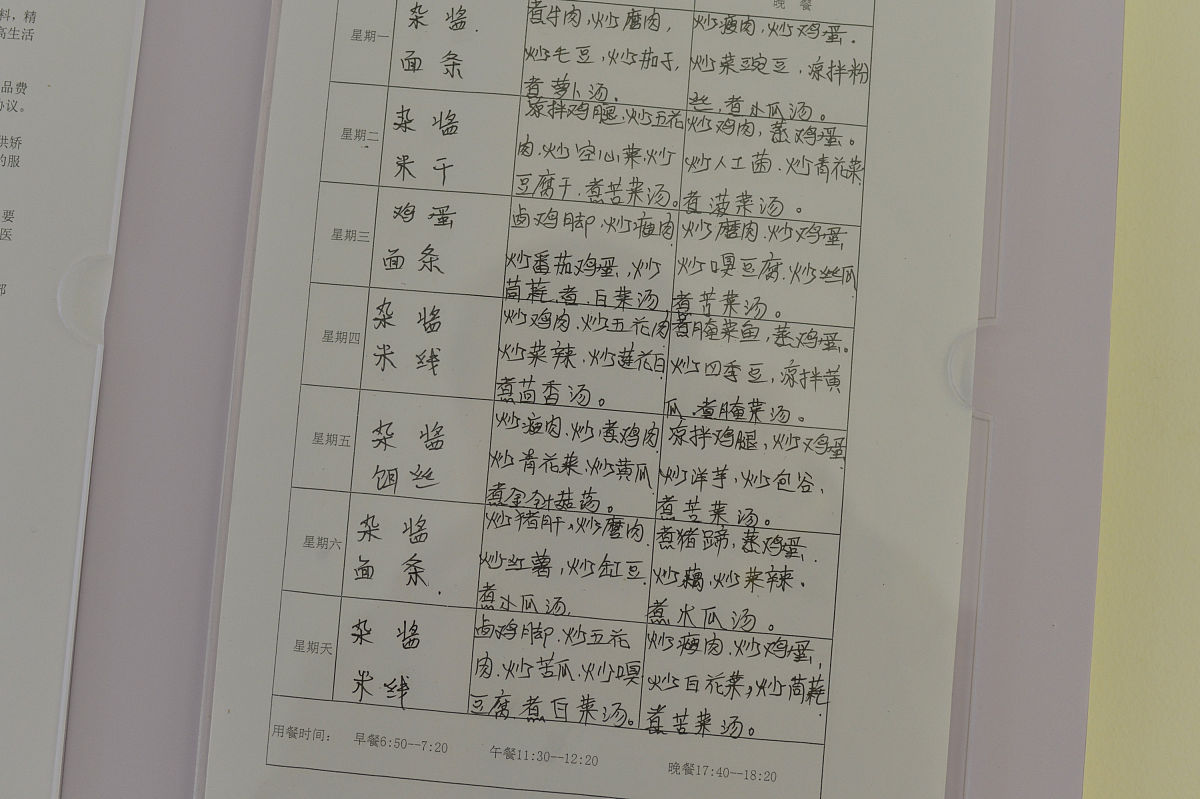 料，精
高生活
品费
协议。
供矫
的服
要
医
部
晚 餐
星期一
杂 酱.
面 条
煮牛肉,炒磨肉,
炒毛豆,炒茄子,
煮萝卜汤。
炒瘦肉,炒鸡蛋.
炒菜豌豆,凉拌粉
丝,煮水瓜汤。
星期二
杂 酱
米 干
凉拌鸡腿,炒五花
肉.炒空心菜.炒
豆腐干.煮苦菜汤。
炒鸡肉,蒸鸡蛋。
炒人工菌.炒青花菜
煮菠菜汤。
星期三
鸡 蛋
面 条
卤鸡脚.炒瘦肉
炒番茄鸡蛋,炒
茼蒿.煮.白菜汤
炒磨肉.炒鸡蛋
炒嗅豆腐.炒丝瓜
煮苦菜汤。
星期四
杂 酱
米 线
炒鸡肉.炒五花肉
炒菜辣.炒莲花白
煮茴香汤。
煮腌菜鱼,蒸鸡蛋。
炒四季豆,凉拌黄
瓜.煮腌菜汤。
星期五
杂 酱
饵 丝
炒瘦肉.炒煮鸡肉
炒青花菜.炒黄瓜
煮金针菇汤。
凉拌鸡腿,炒鸡蛋
炒洋芋,炒包谷,
煮苦菜汤。
星期六
杂 酱
面 条.
炒猪肝,炒磨肉.
炒红薯,炒缸豆
煮水瓜汤.
煮猪蹄,蒸鸡蛋.
炒藕.炒菜辣.
煮水瓜汤。
星期天
杂 酱
米 线
卤鸡脚.炒五花
肉.炒苦瓜.炒嗅
豆腐.煮白菜汤。
炒瘦肉.炒鸡蛋,
炒白花菜,炒茼蒿
煮苦菜汤。
用餐时间： 早餐6:50--7:20 午餐11:30--12:20 晚餐17:40--18:20